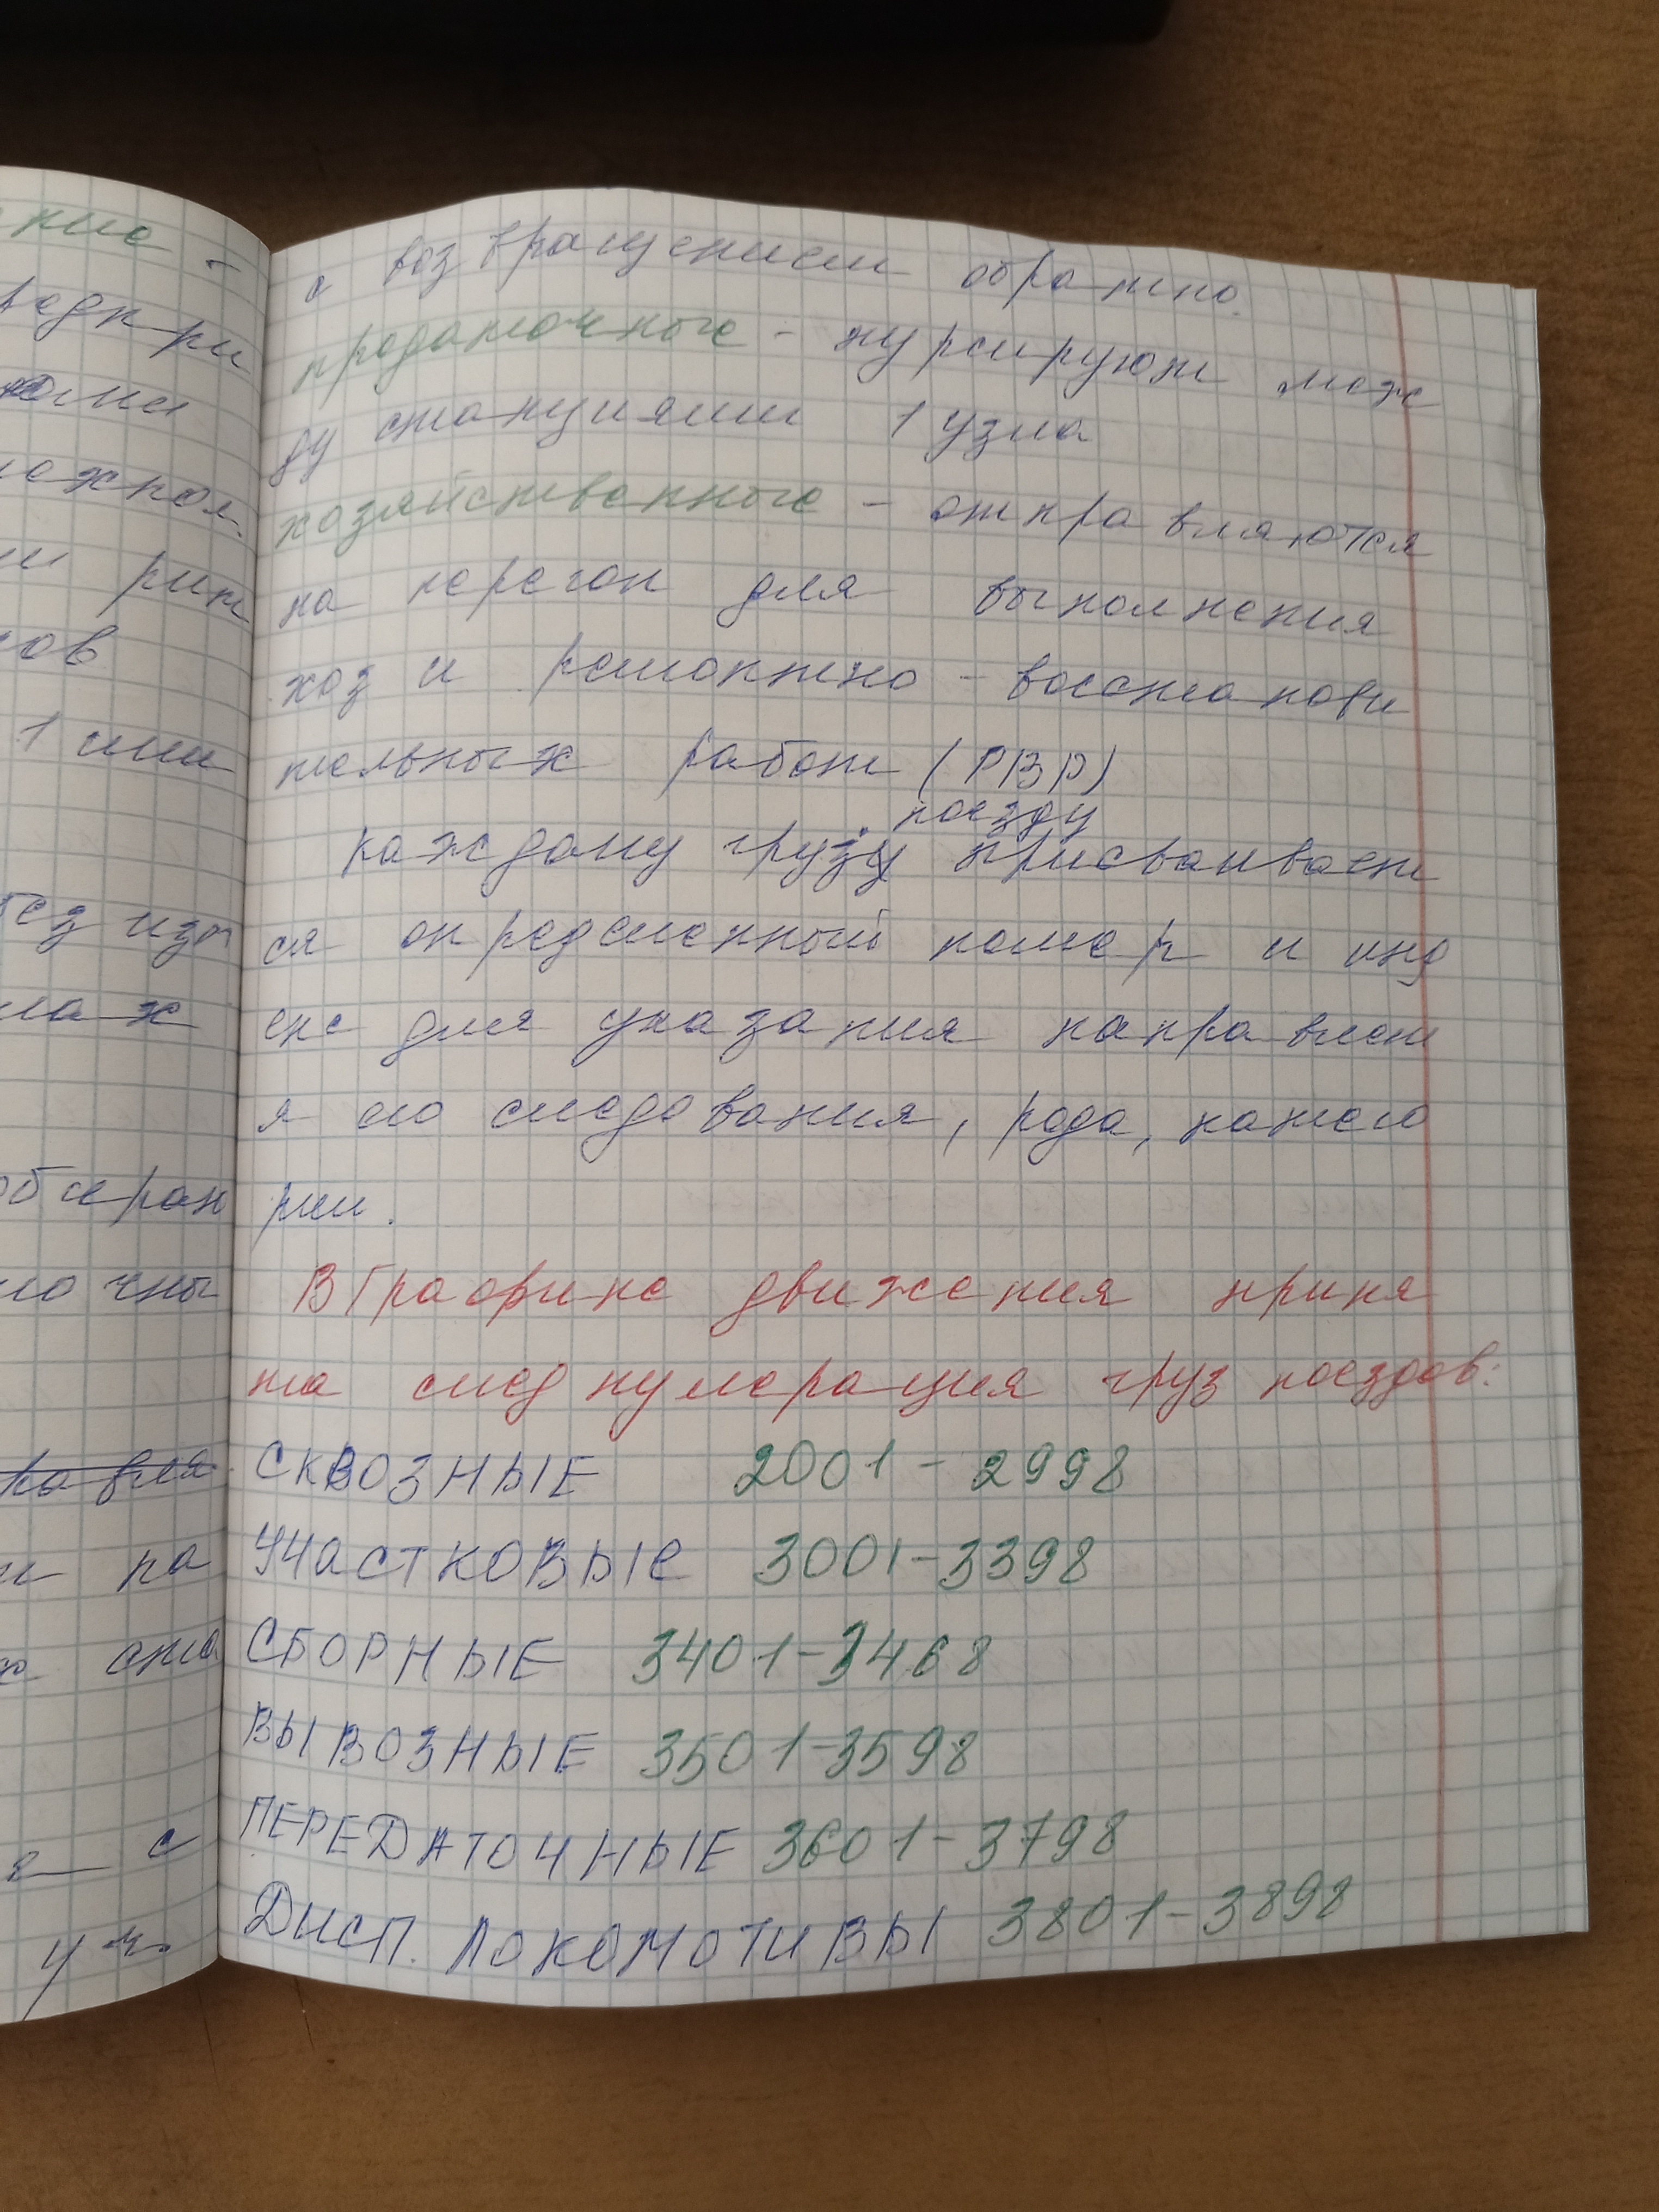 ние -
с возвращением обратно.
продаточные - курсируют меж
ду станциями 1 узла
хозяйственные - отправляются
на перегон для выполнения
хоз и ремонтно - восстанови
тельных работ (РВР)
поезду
каждому грузу присваивает
ся определенный номер и инд
екс для указания направлен
я его следования, рода, катего
рии.
В графике движения приня
та след нумерация груз поездов:
СКВОЗНЫЕ 2001 - 2998
УЧАСТКОВЫЕ 3001-3398
СБОРНЫЕ 3401-3468
ВЫВОЗНЫЕ 3501-3598
ПЕРЕДАТОЧНЫЕ 3601-3798
ДИСП. ЛОКОМОТИВЫ 3801-3898